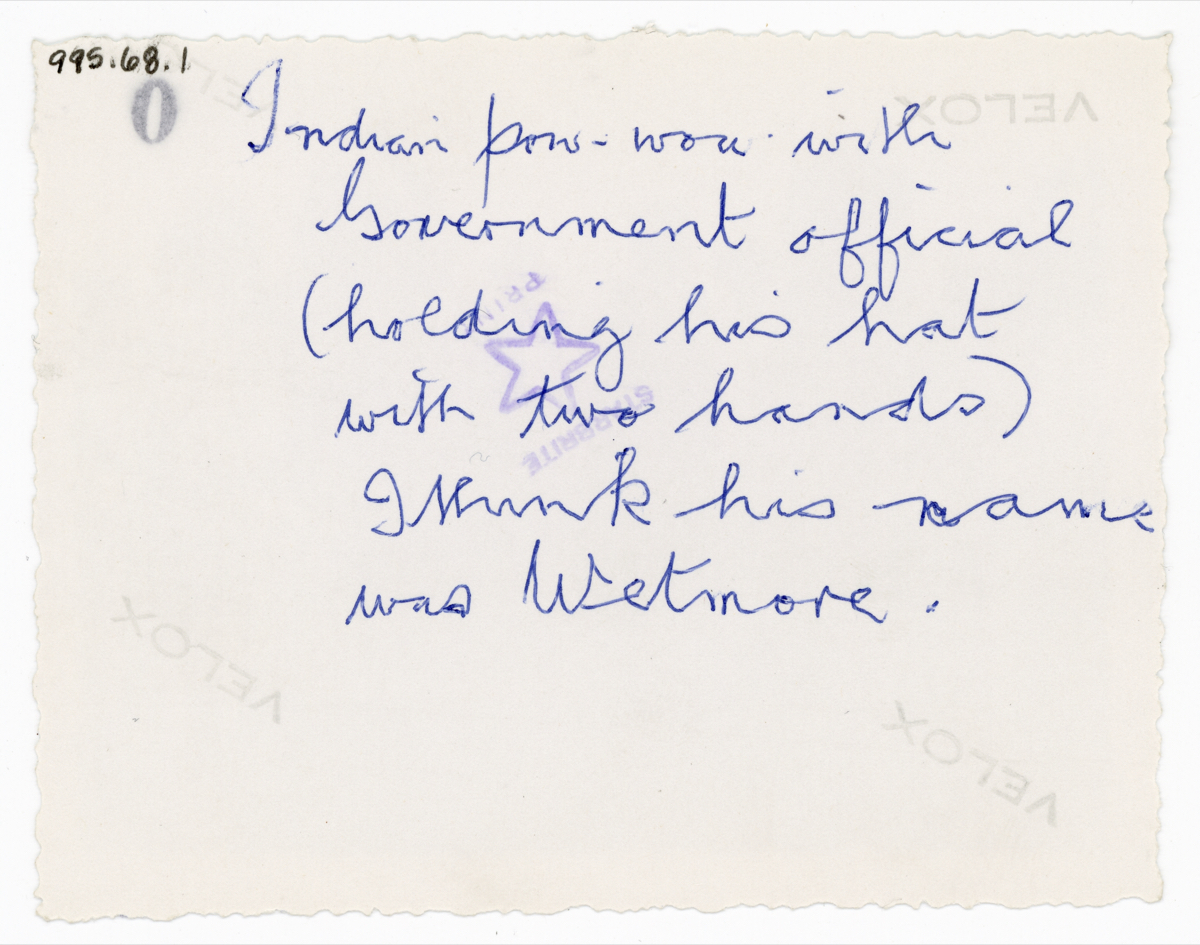 995.68.1
0
Indian pow-wow with
Government official
(holding his hat
with two hands)
I think his name
was Wetmore.
STARBRITE
VELOX
VELOX
VELOX